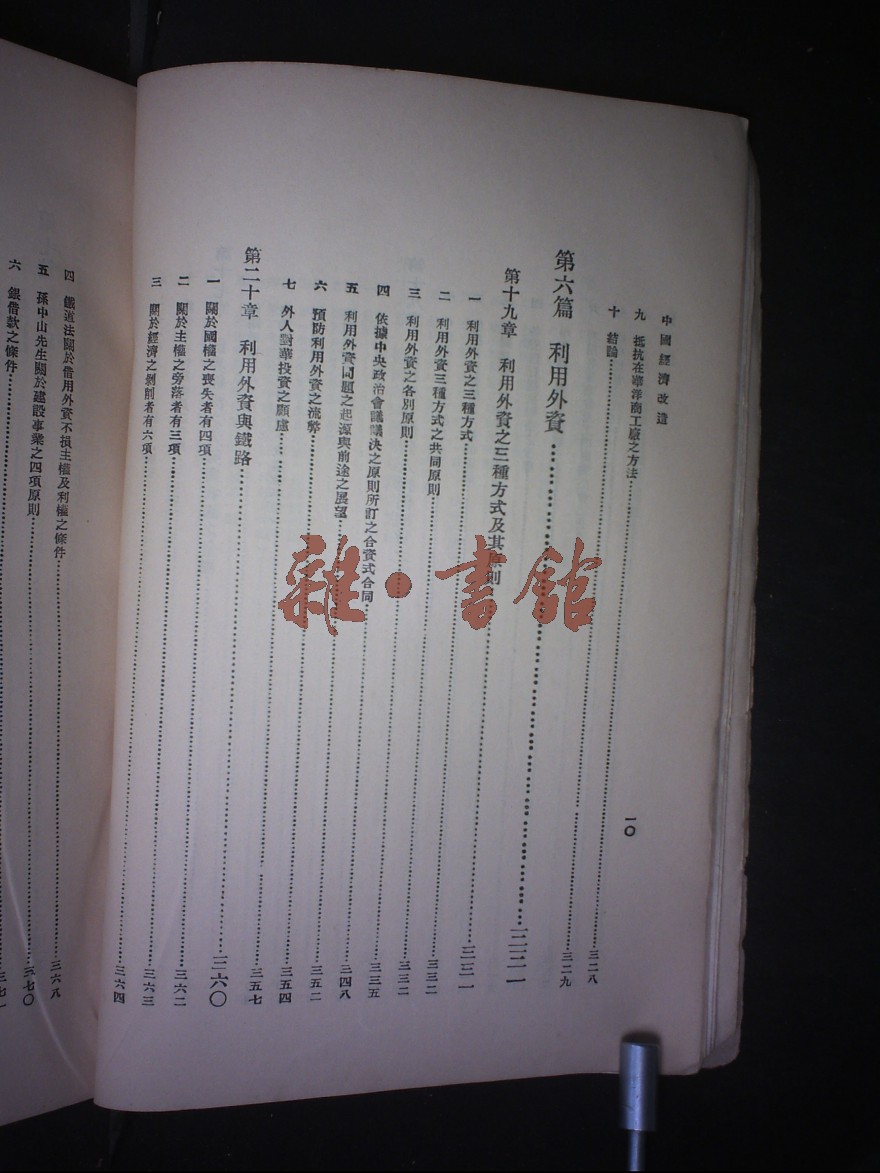 中國經濟改造 一〇
九 抵抗在華洋商工廠之方法……三二八
十 結論……三二九
第六篇 利用外資……三三一
第十九章 利用外資之三種方式及其原則……三三一
一 利用外資之三種方式……三三二
二 利用外資三種方式之共同原則……三三二
三 利用外資之各別原則……三三五
四 依據中央政治會議議決之原則所訂之合資式合同……三四八
五 利用外資問題之起源與前途之展望……三五二
六 預防利用外資之流弊……三五四
七 外人對華投資之顧慮……三五七
第二十章 利用外資與鐵路……三六〇
一 關於國權之喪失者有四項……三六二
二 關於主權之旁落者有三項……三六三
三 關於經濟之剝削者有六項……三六四
四 鐵道法關於借用外資不損主權及利權之條件……三六八
五 孫中山先生關於建設事業之四項原則……三七〇
六 銀借款之條件……三七一
雜·書館